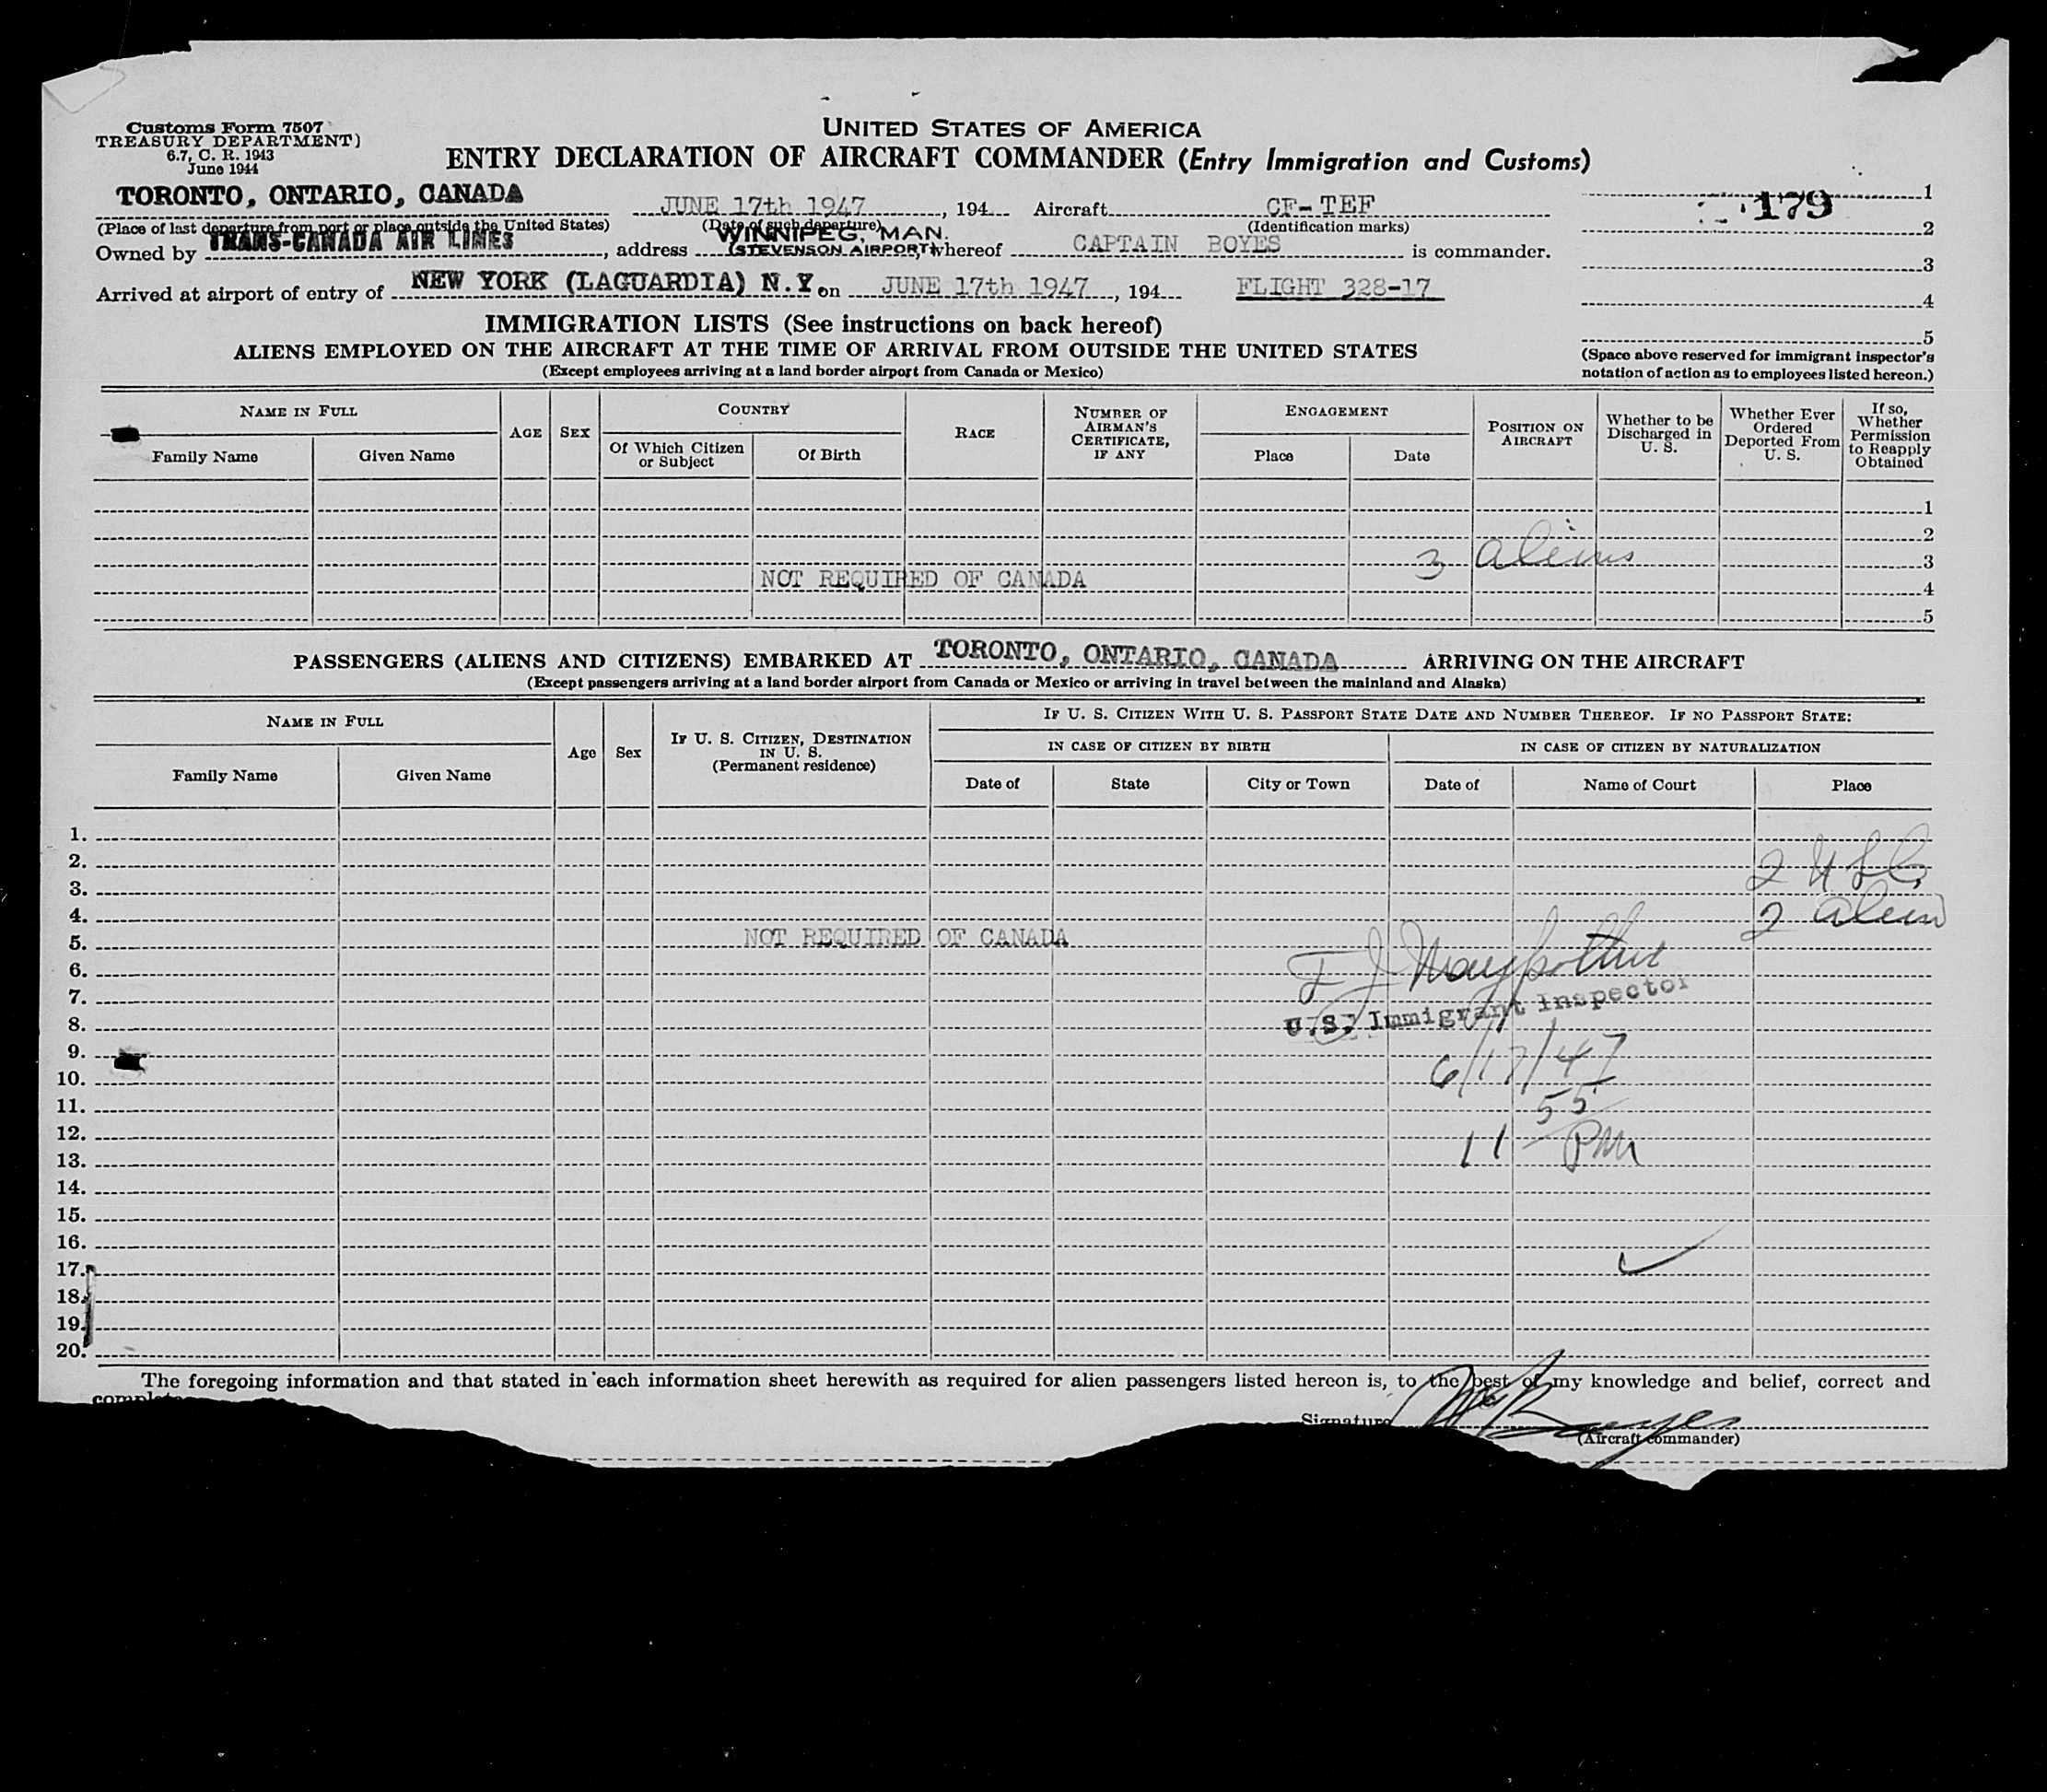 Customs Form 7507
TREASURY DEPARTMENT)
6.7, C. R. 1943
June 1944
UNITED STATES OF AMERICA
ENTRY DECLARATION OF AIRCRAFT COMMANDER (Entry Immigration and Customs)
TORONTO, ONTARIO, CANADA JUNE 17th 1947, 194 Aircraft CF-TEF 1
(Place of last departure from port or place outside the United States) (Date of such departure) (Identification marks) 179 2
Owned by TRANS-CANADA AIR LINES, address WINNIPEG, MAN. (STEVENSON AIRPORT), whereof CAPTAIN BOYES is commander.
3
Arrived at airport of entry of NEW YORK (LAGUARDIA) N.Y. on JUNE 17th 1947, 194 FLIGHT 328-17
4
IMMIGRATION LISTS (See instructions on back hereof)
5
ALIENS EMPLOYED ON THE AIRCRAFT AT THE TIME OF ARRIVAL FROM OUTSIDE THE UNITED STATES
(Except employees arriving at a land border airport from Canada or Mexico)
(Space above reserved for immigrant inspector's
notation of action as to employees listed hereon.)
NAME IN FULL
Family Name
Given Name
AGE
SEX
COUNTRY
Of Which Citizen
or Subject
Of Birth
RACE
NUMBER OF
AIRMAN'S
CERTIFICATE,
IF ANY
ENGAGEMENT
Place
Date
POSITION ON
AIRCRAFT
Whether to be
Discharged in
U. S.
Whether Ever
Ordered
Deported From
U. S.
If so,
Whether
Permission
to Reapply
Obtained
1
2
3 aliens 3
NOT REQUIRED OF CANADA 4
5
PASSENGERS (ALIENS AND CITIZENS) EMBARKED AT TORONTO, ONTARIO, CANADA ARRIVING ON THE AIRCRAFT
(Except passengers arriving at a land border airport from Canada or Mexico or arriving in travel between the mainland and Alaska)
NAME IN FULL
Family Name
Given Name
Age
Sex
IF U. S. CITIZEN, DESTINATION
IN U. S.
(Permanent residence)
IF U. S. CITIZEN WITH U. S. PASSPORT STATE DATE AND NUMBER THEREOF. IF NO PASSPORT STATE:
IN CASE OF CITIZEN BY BIRTH
Date of
State
City or Town
IN CASE OF CITIZEN BY NATURALIZATION
Date of
Name of Court
Place
1.
2. 2 USC
3.
4. 2 alien
5. NOT REQUIRED OF CANADA
6.
7.
8. U.S. Immigrant Inspector
9.
10. 6/17/47
11. 55
12.
13. 11 PM
14.
15.
16.
17.
18.
19.
20.
The foregoing information and that stated in each information sheet herewith as required for alien passengers listed hereon is, to the best of my knowledge and belief, correct and
complete
Signature
(Aircraft commander)